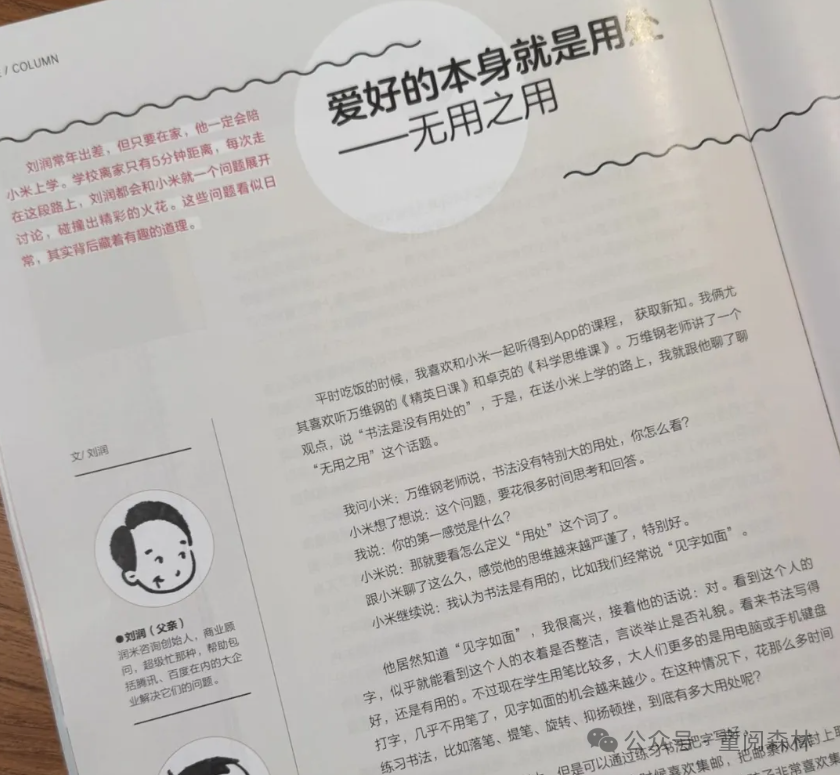 / COLUMN
爱好的本身就是用处
——无用之用
刘润常年出差，但只要在家，他一定会陪
小米上学。学校离家只有5分钟距离，每次走
在这段路上，刘润都会和小米就一个问题展开
讨论，碰撞出精彩的火花。这些问题看似日
常，其实背后藏着有趣的道理。
文/ 刘润
●刘润（父亲）
润米咨询创始人，商业顾
问，超级忙那种，帮助包
括腾讯、百度在内的大企
业解决它们的问题。
平时吃饭的时候，我喜欢和小米一起听得到App的课程，获取新知。我俩尤
其喜欢听万维钢的《精英日课》和卓克的《科学思维课》。万维钢老师讲了一个
观点，说“书法是没有用处的”，于是，在送小米上学的路上，我就跟他聊了聊
“无用之用”这个话题。
我问小米：万维钢老师说，书法没有特别大的用处，你怎么看？
小米想了想说：这个问题，要花很多时间思考和回答。
我说：你的第一感觉是什么？
小米说：那就要看怎么定义“用处”这个词了。
跟小米聊了这么久，感觉他的思维越来越严谨了，特别好。
小米继续说：我认为书法是有用的，比如我们经常说“见字如面”。
他居然知道“见字如面”，我很高兴，接着他的话说：对。看到这个人的
字，似乎就能看到这个人的衣着是否整洁，言谈举止是否礼貌。看来书法写得
好，还是有用的。不过现在学生用笔比较多，大人们更多的是用电脑或手机键盘
打字，几乎不用笔了，见字如面的机会越来越少。在这种情况下，花那么多时间
练习书法，比如落笔、提笔、旋转、抑扬顿挫，到底有多大用处呢？
但是可以通过练习书法把字写好
候喜欢集邮，把邮票从信封上取
公众号 · 童阅森林